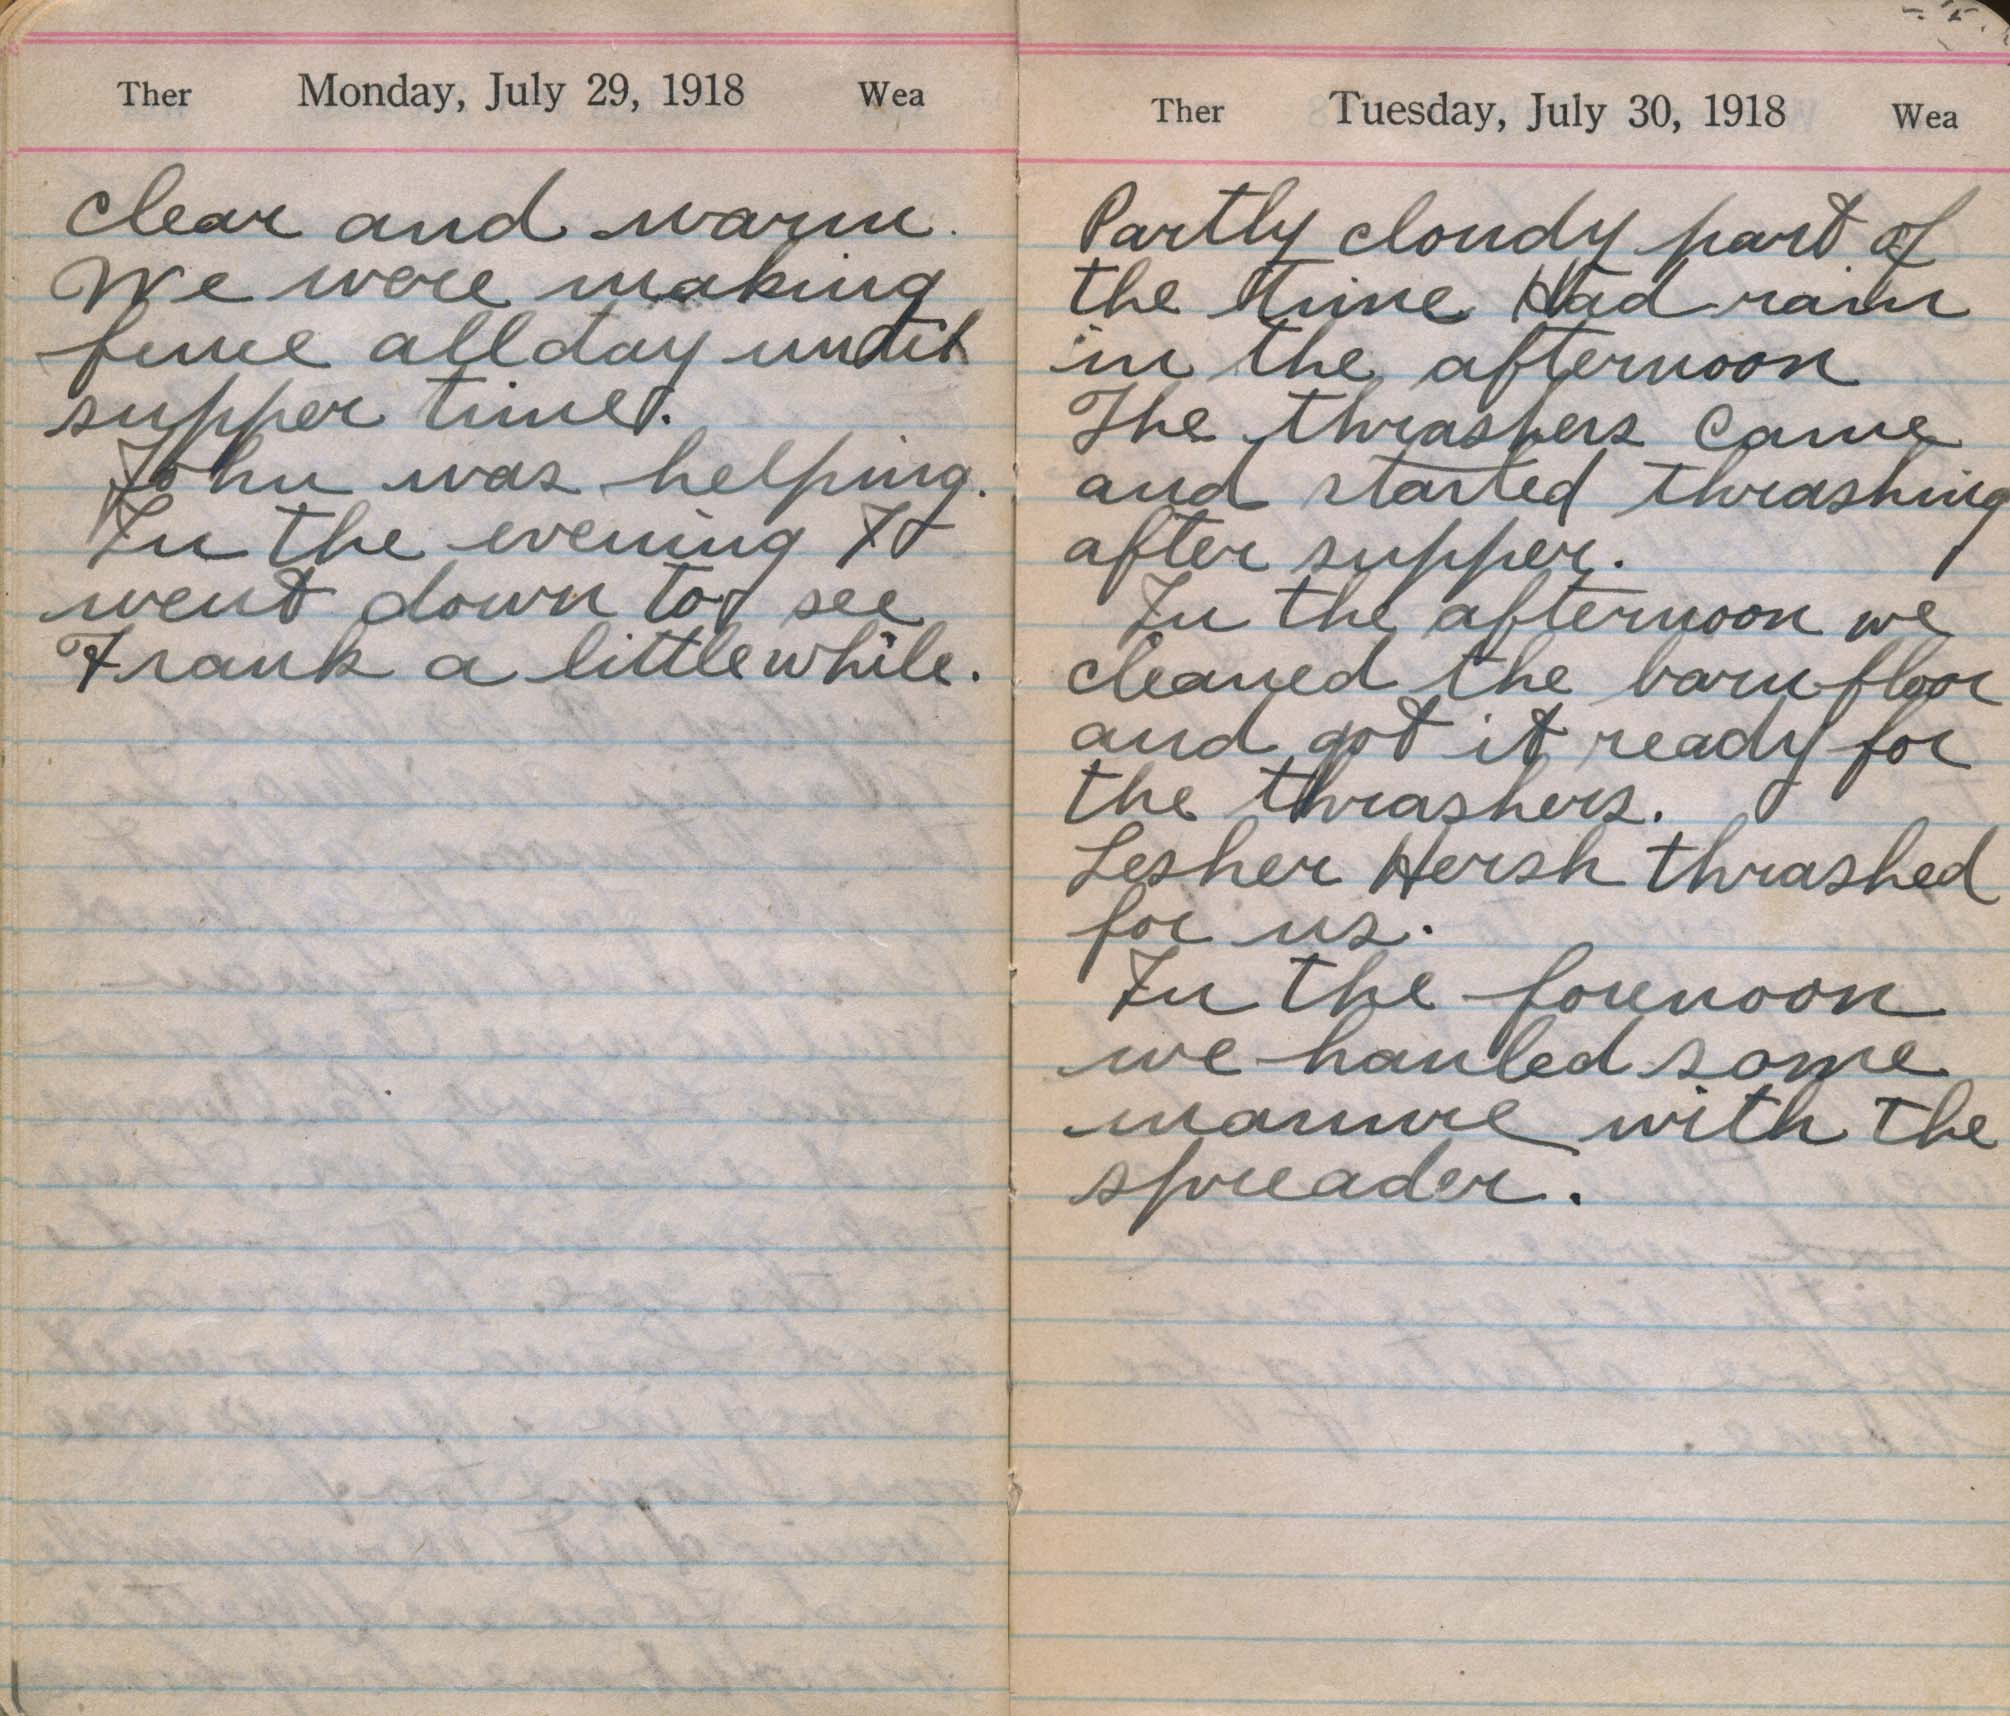 Ther Monday, July 29, 1918 Wea
clear and warm.
We were making
fence all day until
supper time.
John was helping.
In the evening I
went down to see
Frank a little while.
Ther Tuesday, July 30, 1918 Wea
Partly cloudy part of
the time Had rain
in the afternoon
The thrashers came
and started thrashing
after supper.
In the afternoon we
cleaned the barn floor
and got it ready for
the thrashers.
Lesher Hersh thrashed
for us.
In the forenoon
we hauled some
manure with the
spreader.